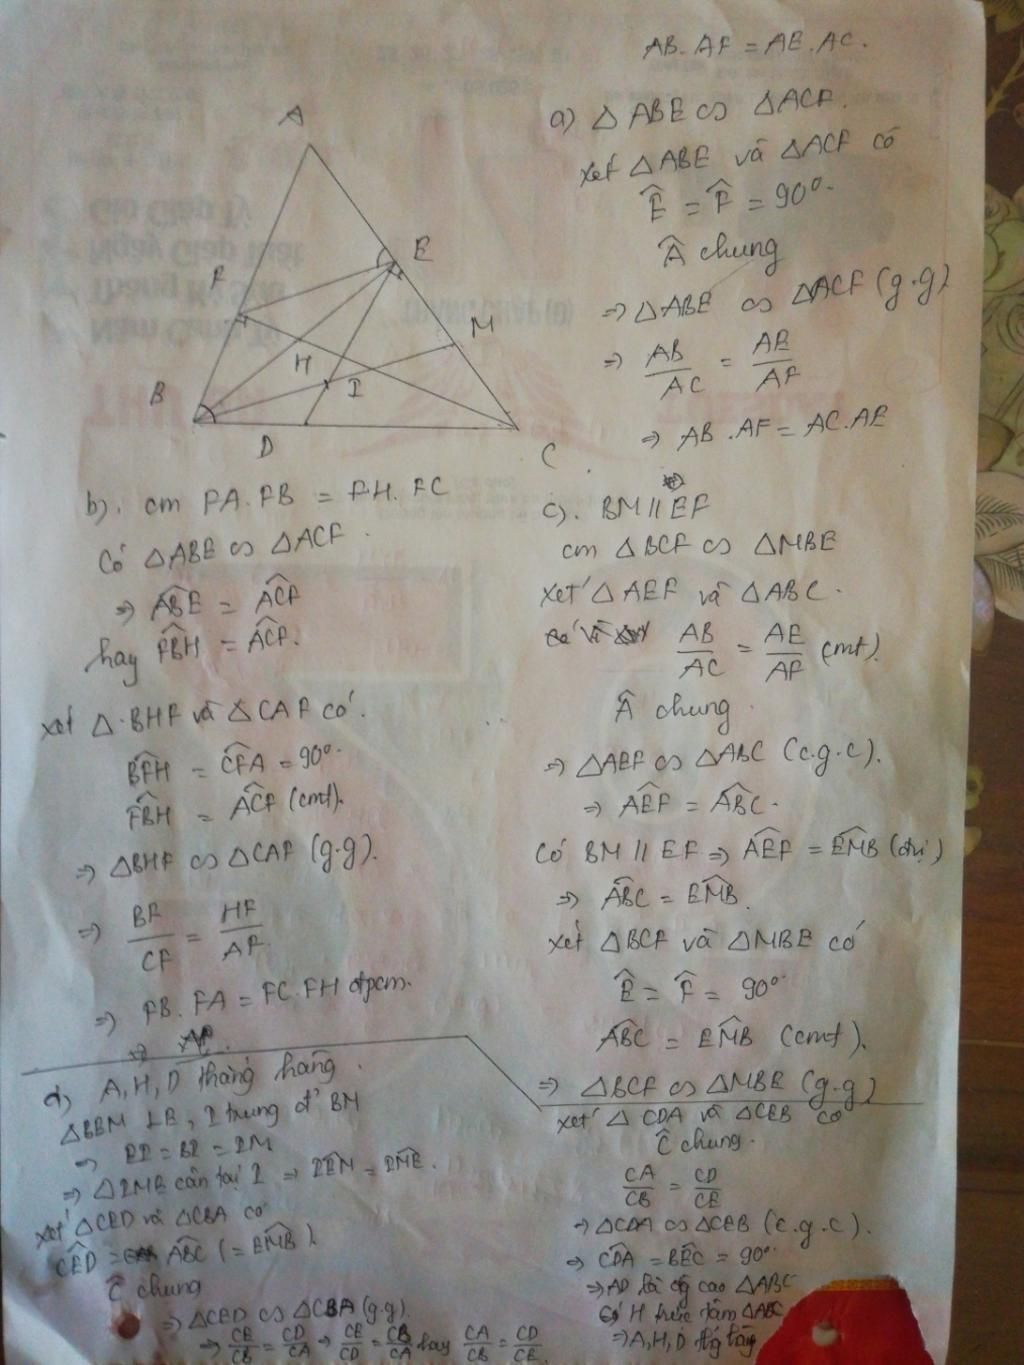 AB.AF = AE.AC.
A
E
F
M
H
I
B
D
C
a) △ABE ∽ △ACF.
xét △ABE và △ACF có
Ê = F̂ = 90°.
 chung
=> △ABE ∽ △ACF (g.g)
=> AB/AC = AE/AF
=> AB.AF = AC.AE
b). cm FA.FB = FH.FC
Có △ABE ∽ △ACF.
=> ABE = ACF
hay FBH = ACF.
xét △BHF và △CAF có.
BFH = CFA = 90°.
FBH = ACF (cmt).
=> △BHF ∽ △CAF (g.g).
=> BF/CF = HF/AF.
=> FB.FA = FC.FH đpcm.
c). BM // EF
cm △BCF ∽ △MBE
xét △AEF và △ABC.
AB/AC = AE/AF (cmt).
 chung.
=> △AEF ∽ △ABC (c.g.c).
=> AEF = ABC.
Có BM // EF => AEF = EMB (đvị)
=> ABC = EMB.
xét △BCF và △MBE có
Ê = F̂ = 90°.
ABC = EMB (cmt).
=> △BCF ∽ △MBE (g.g)
d) A, H, D thẳng hàng.
△BEM ⊥E, I trung đ' BM
=> EI = BI = IM
=> △IME cân tại I => IEM = IME.
xét △CED và △CBA có
CED = ABC (= EMB).
Ĉ chung
=> △CED ∽ △CBA (g.g).
=> CE/CB = CD/CA => CE/CD = CB/CA hay CA/CB = CD/CE.
xét △CDA và △CEB có
Ĉ chung.
CA/CB = CD/CE
=> △CDA ∽ △CEB (c.g.c).
=> CDA = BEC = 90°.
=> AD là đg cao △ABC
Có H trực tâm △ABC
=> A, H, D thg hàng